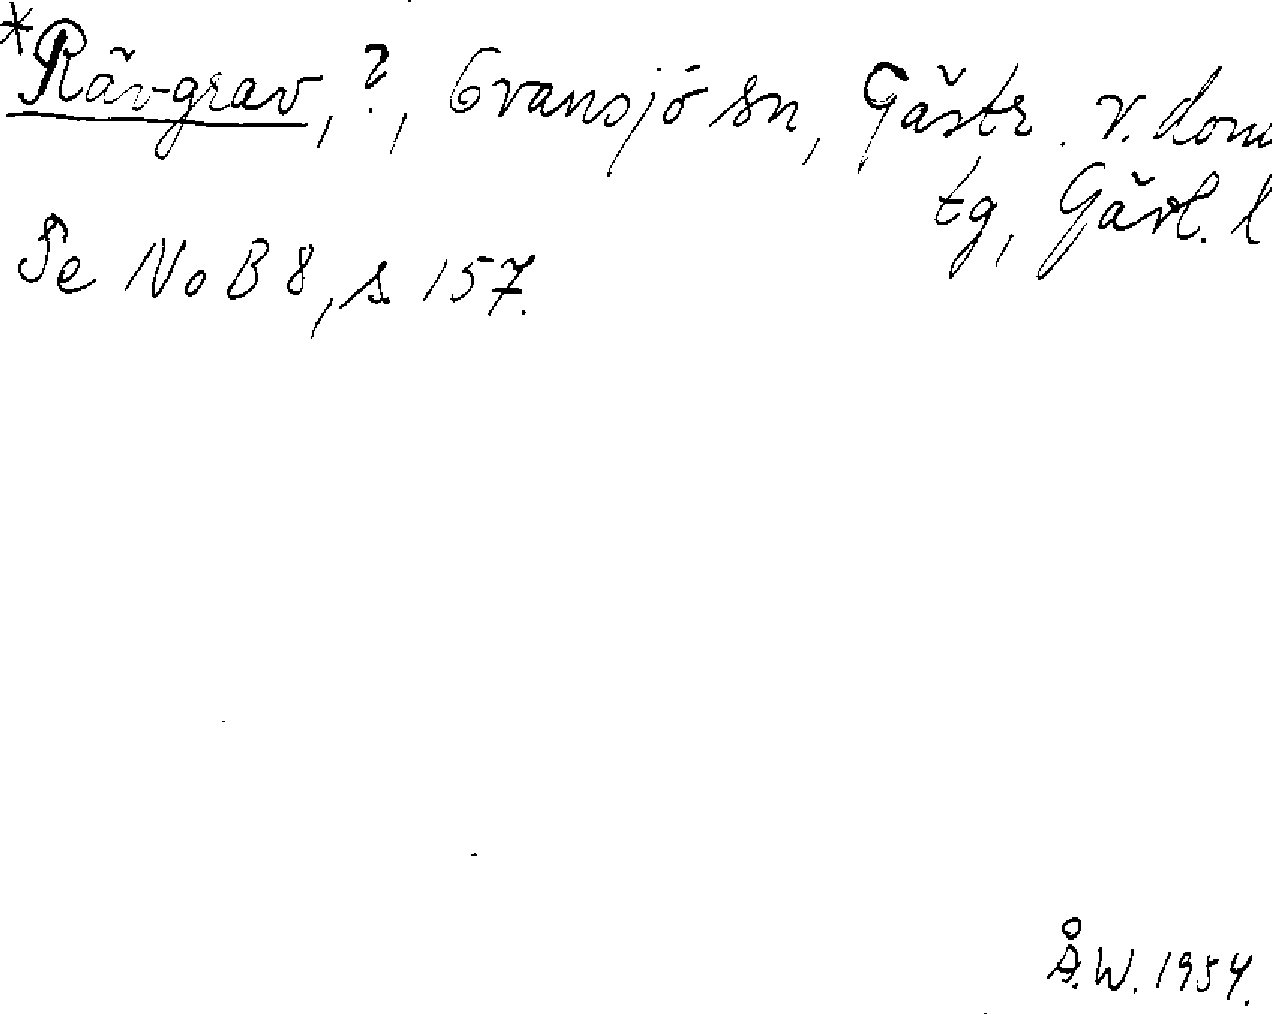 *Räv-grav, ?, Ovansjö sn, Gästr. v. dom
tg, Gävl. l
Se NoB 8, s 157.
Å.W. 1954.